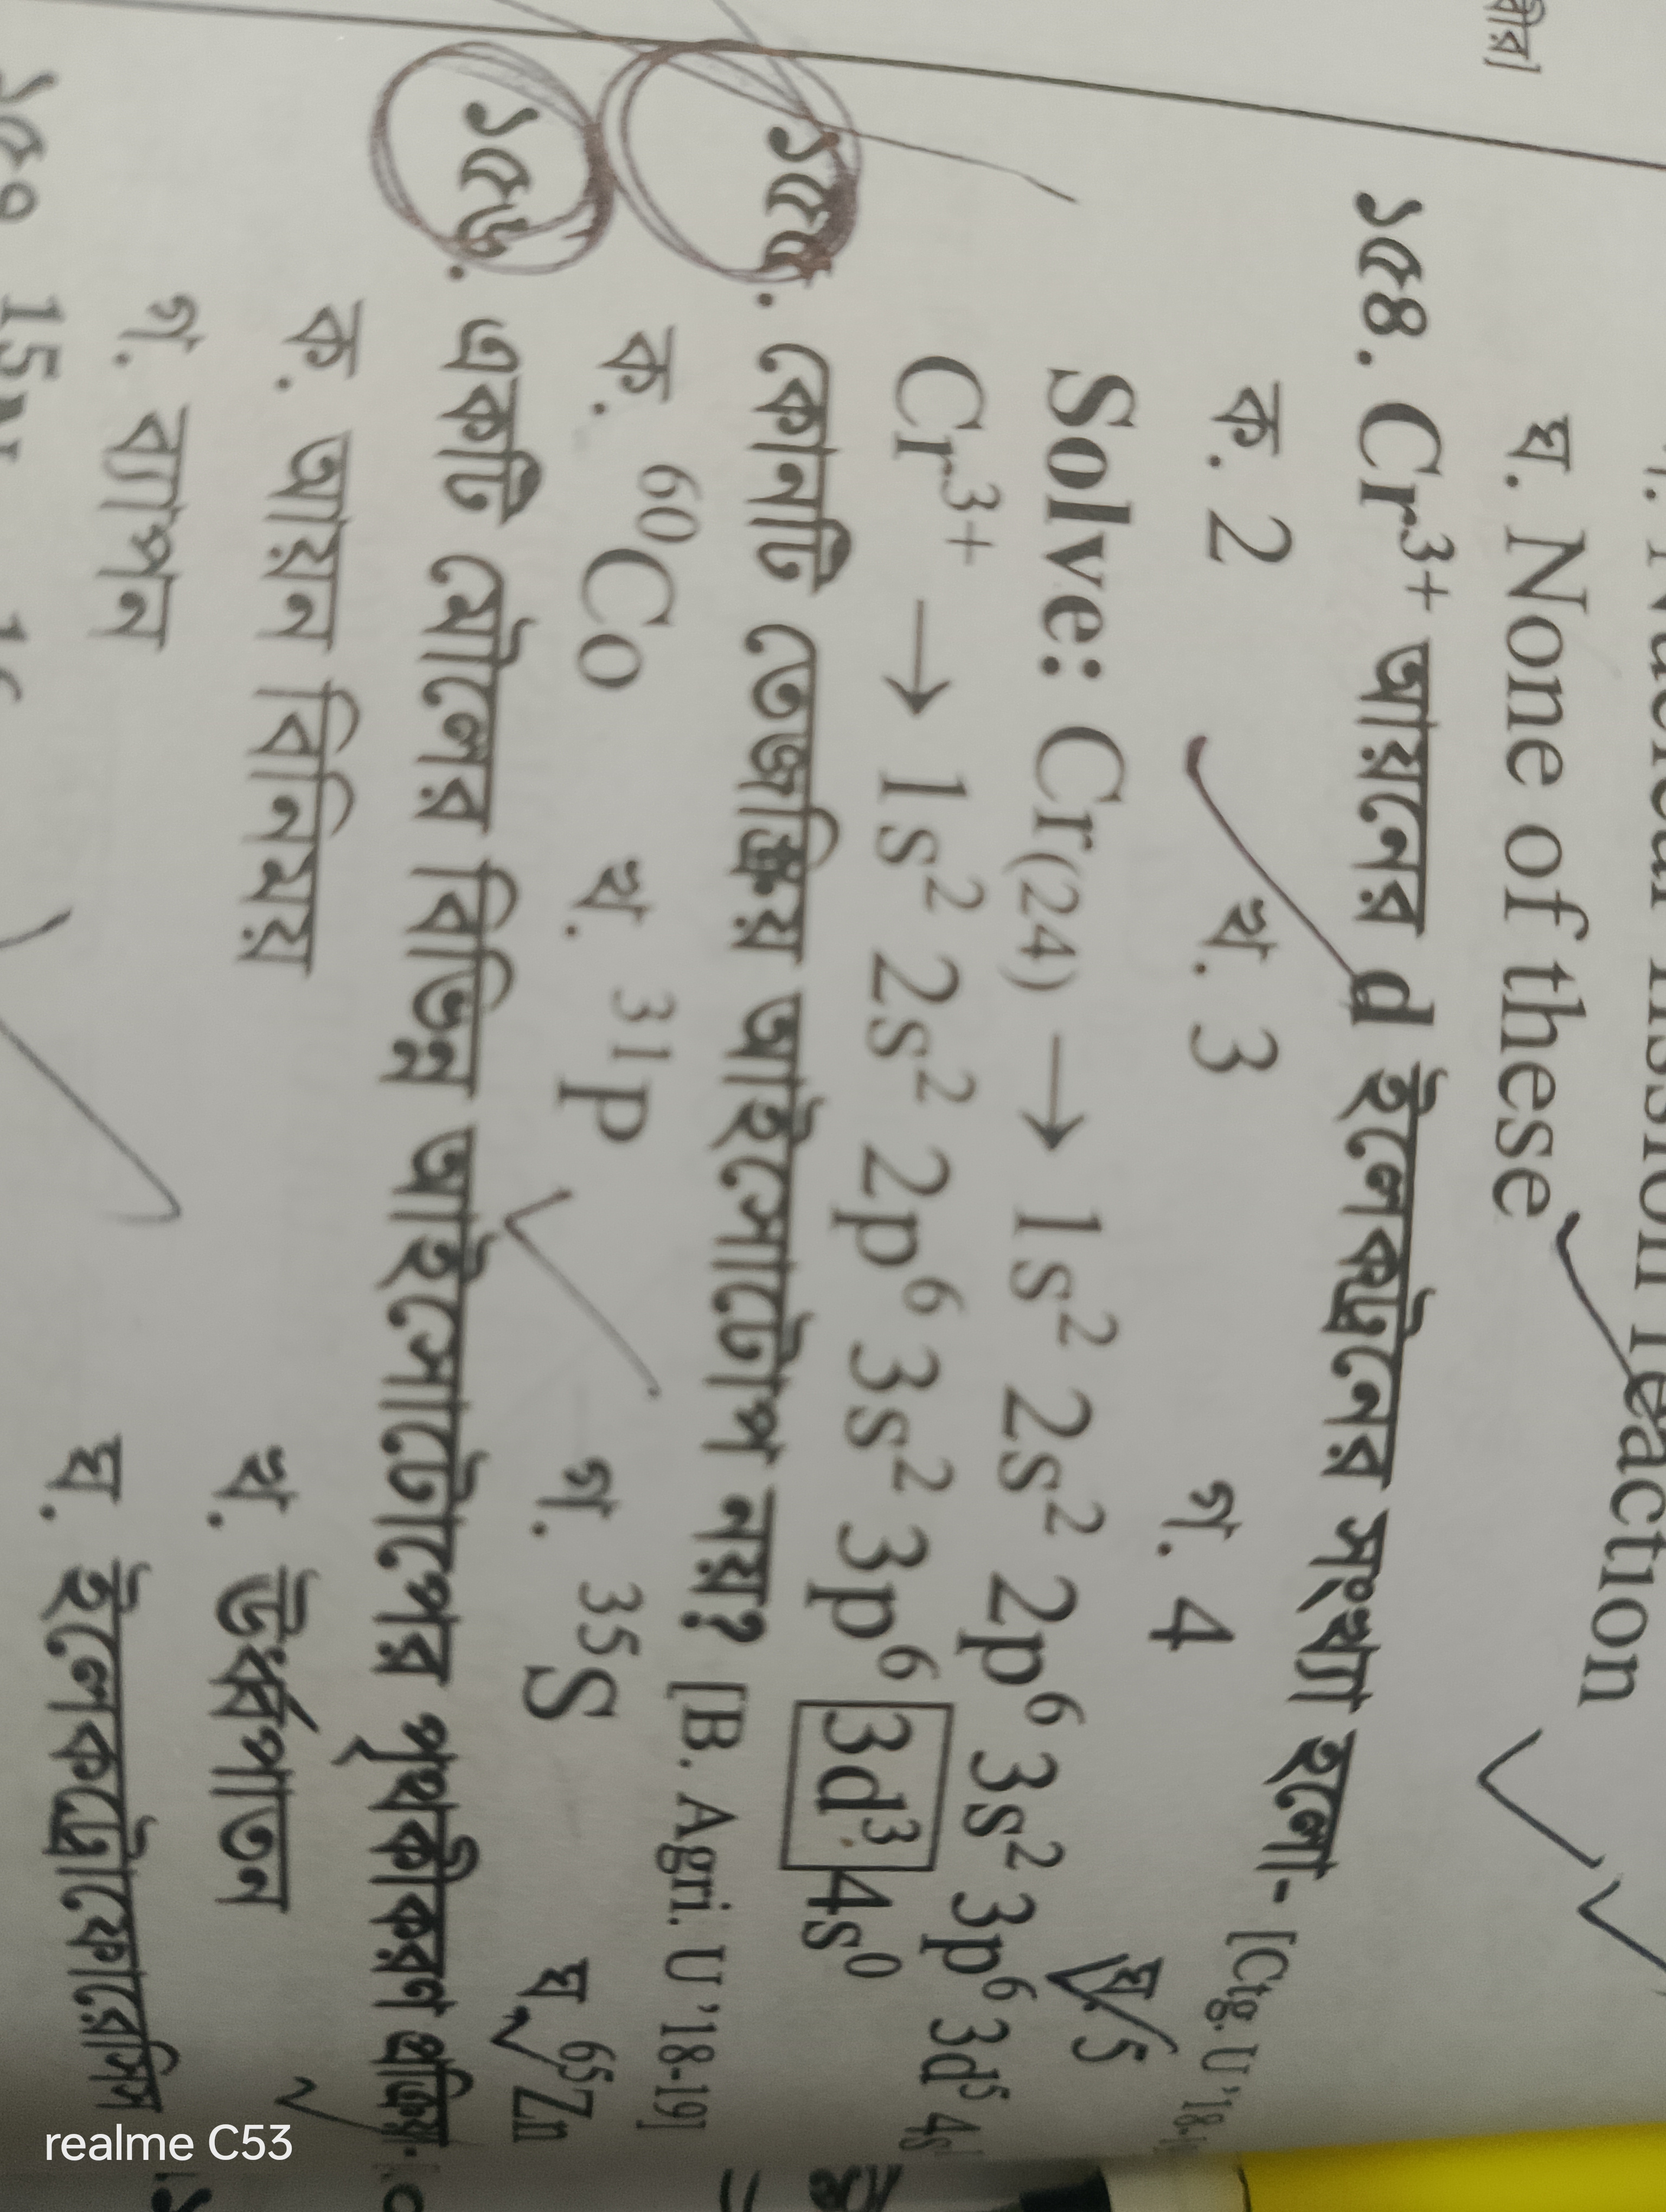 ঘ. None of these
১৫৪. Cr³⁺ আয়নের d ইলেকট্রনের সংখ্যা হলো- [Ctg. U'18-
ক. 2 খ. 3 গ. 4 ঘ. 5
Solve: Cr(24) → 1s² 2s² 2p⁶ 3s² 3p⁶ 3d⁵ 4s¹
Cr³⁺ → 1s² 2s² 2p⁶ 3s² 3p⁶ 3d³ 4s⁰
১৫৫. কোনটি তেজষ্ক্রিয় আইসোটোপ নয়? [B. Agri. U'18-19]
ক. ⁶⁰Co খ. ³¹P গ. ³⁵S ঘ. ⁶⁵Zn
১৫৬. একটি মৌলের বিভিন্ন আইসোটোপের পৃথকীকরণ প্রক্রিয়া-
ক. আয়ন বিনিময় খ. উর্ধ্বপাতন
গ. ব্যাপন ঘ. ইলেকট্রোফোরেসিস
realme C53